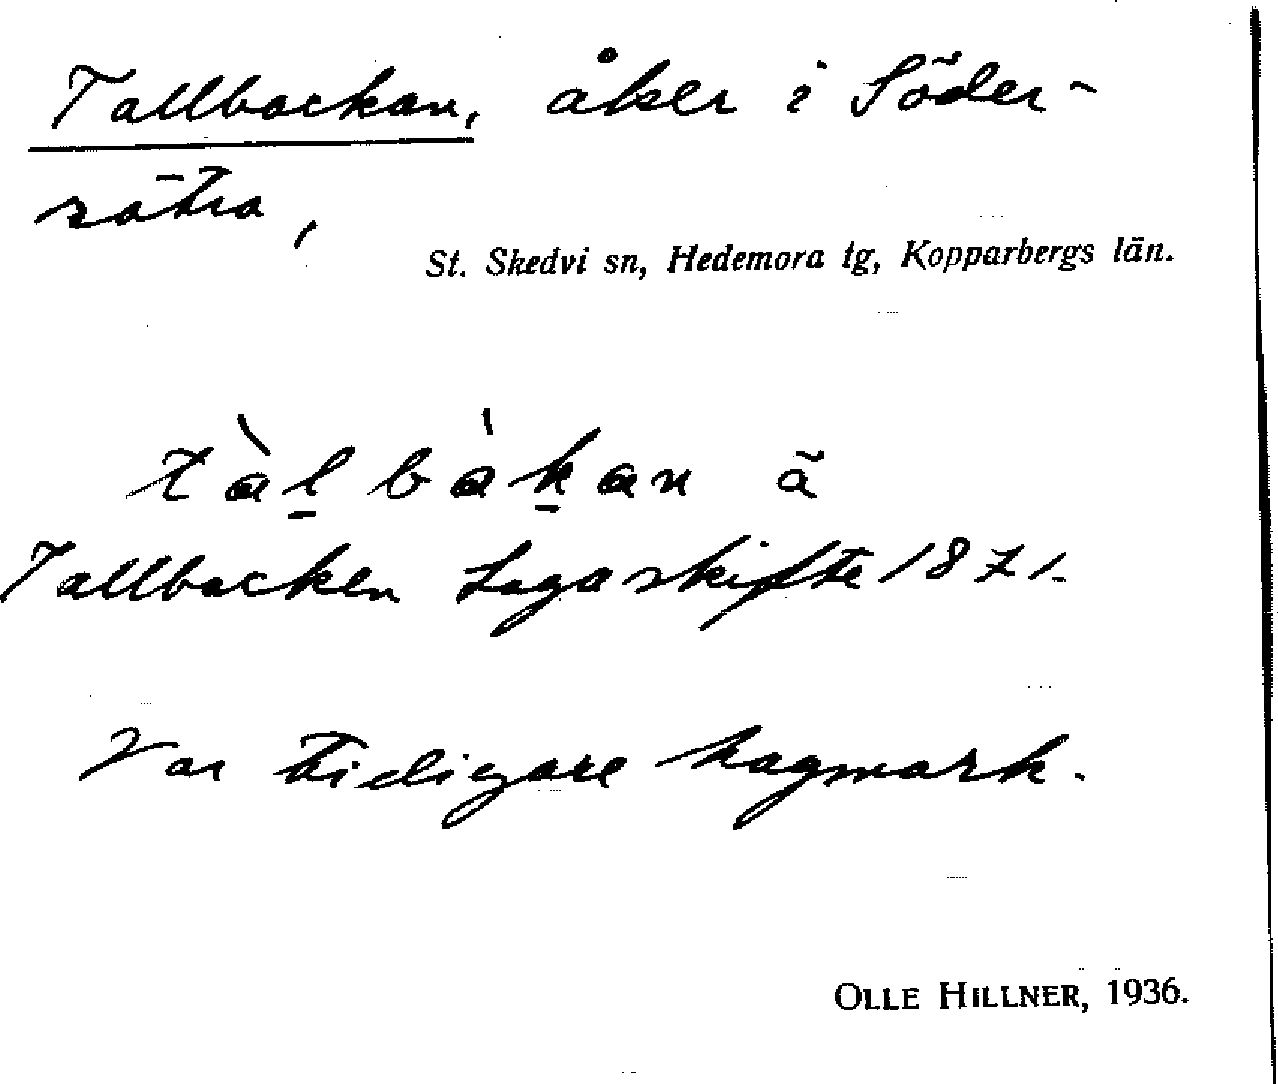 Tallbackan, åker i Söder-
sätra,
St. Skedvi sn, Hedemora tg, Kopparbergs län.
tàl bàkan ã
Tallbacken Laga skifte 1871.
Var tidigare hagmark.
OLLE HILLNER, 1936.